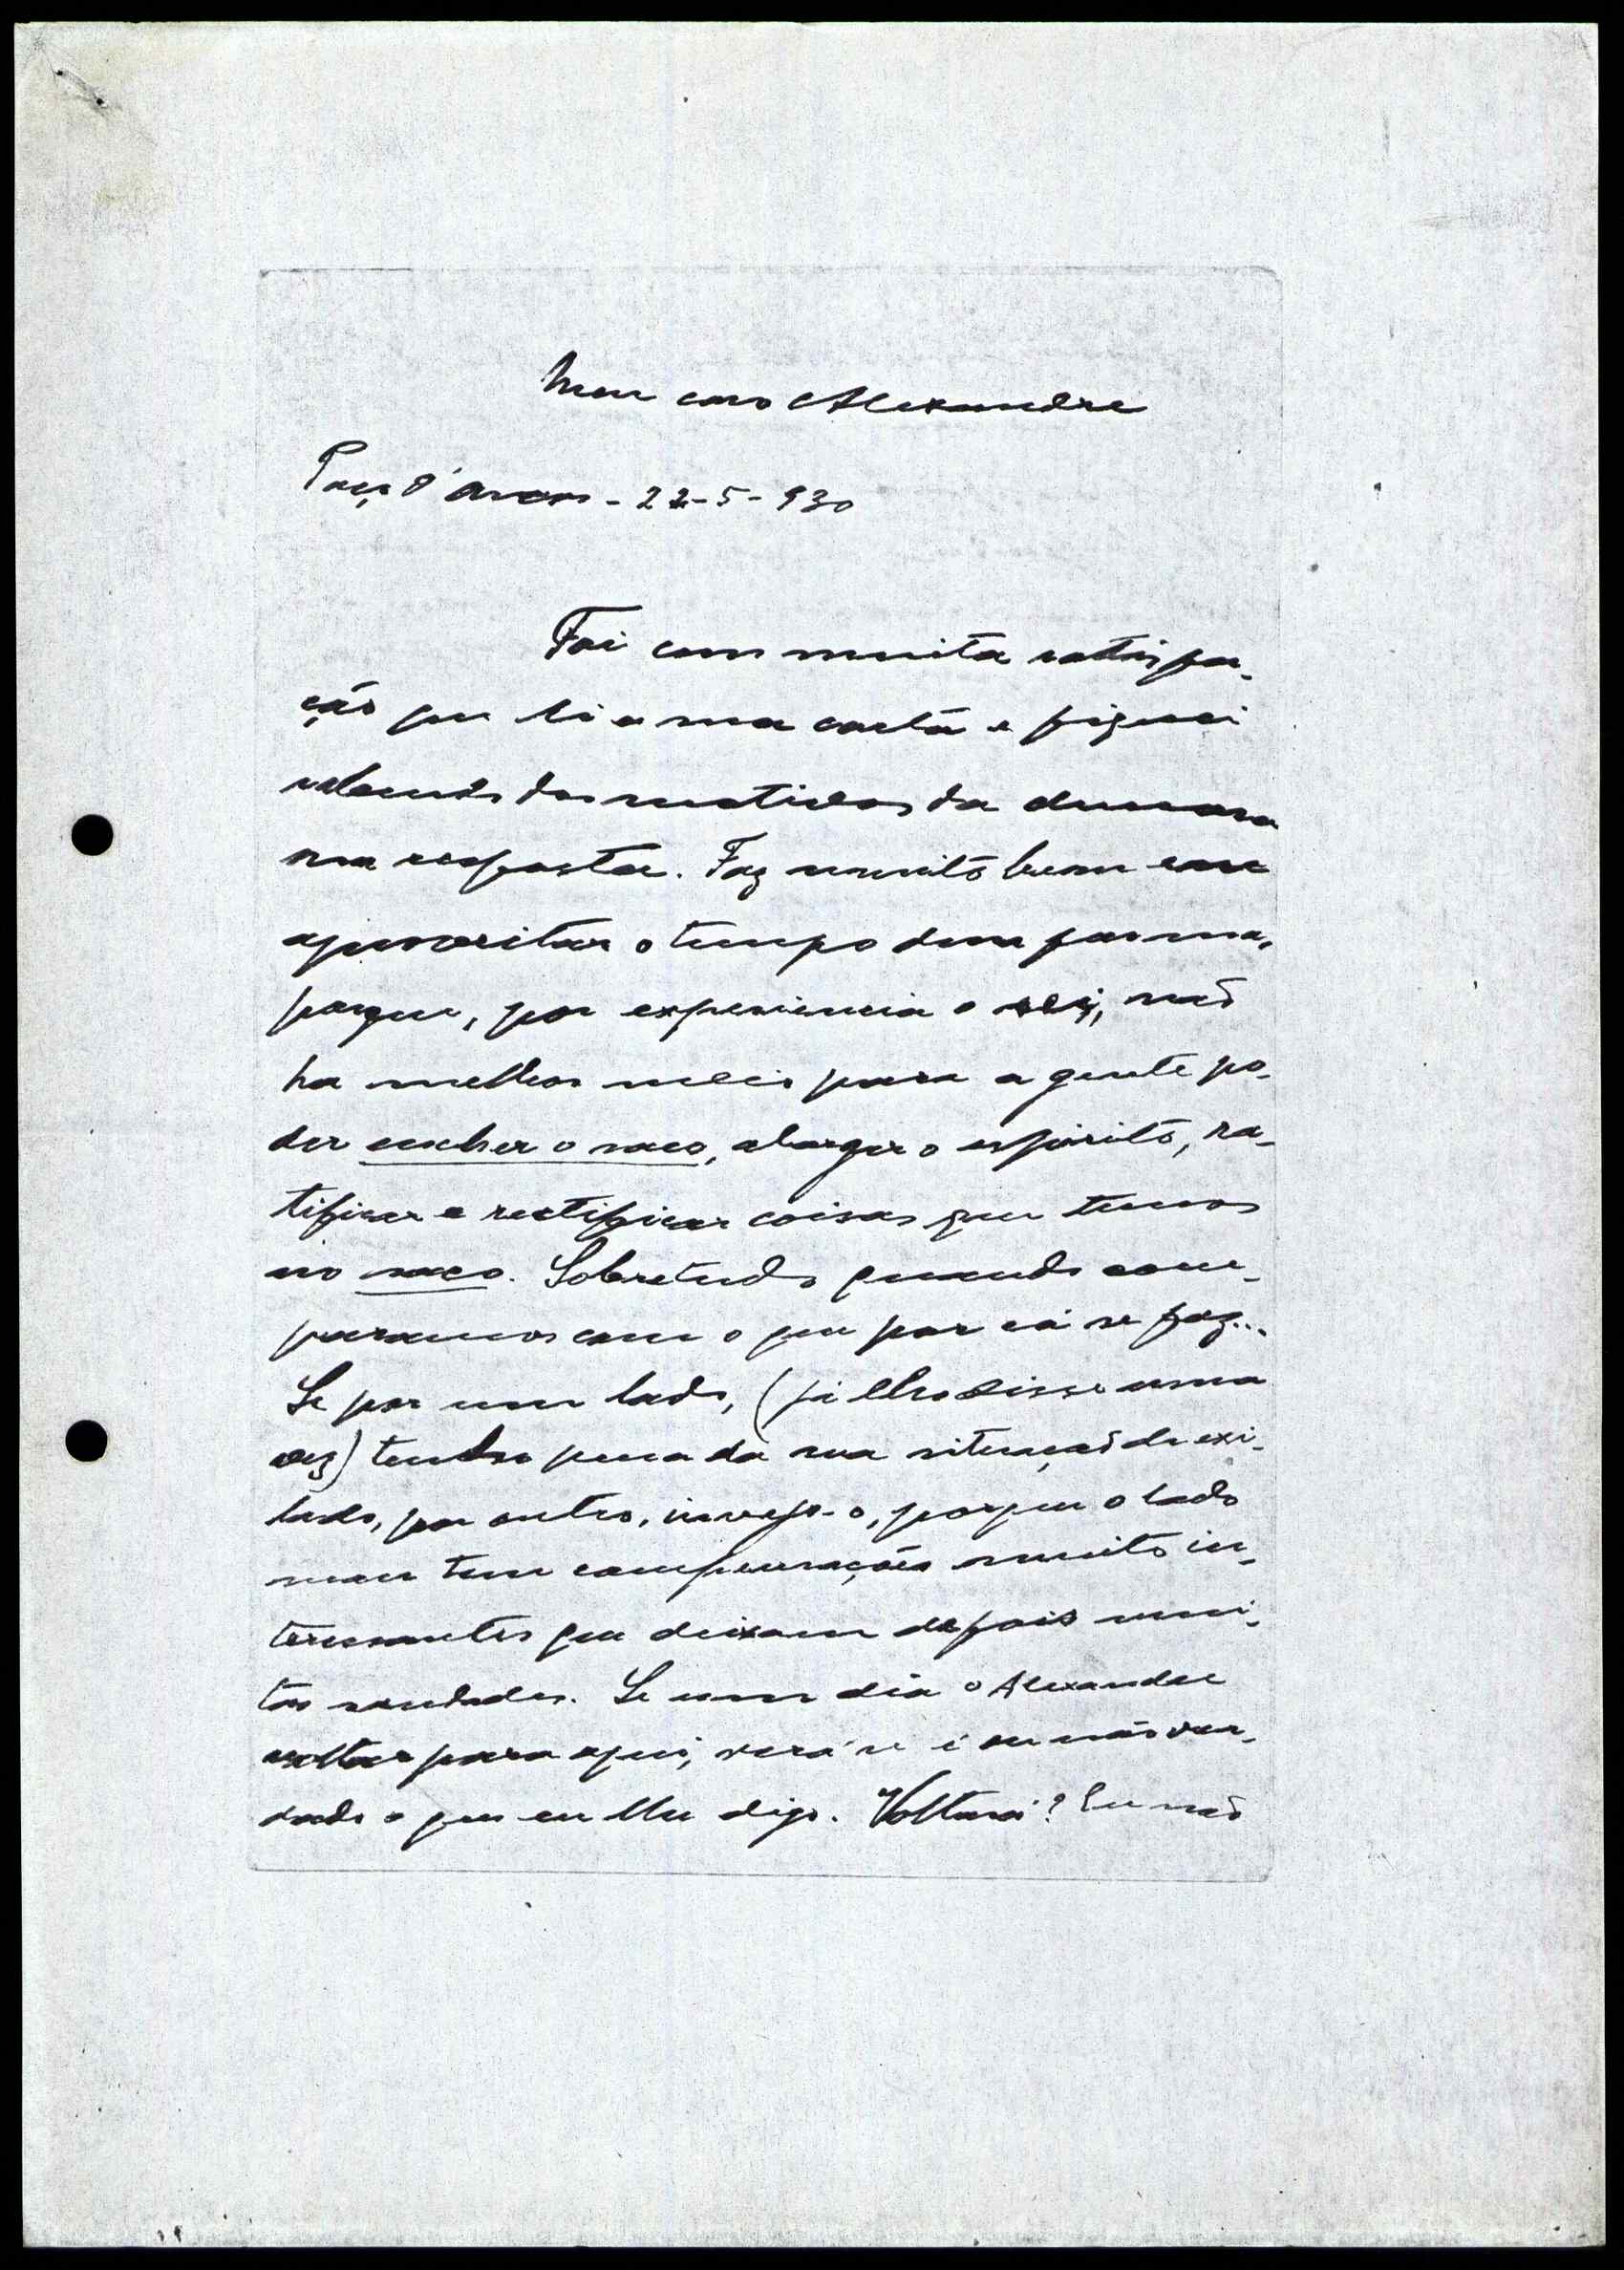 Meu caro Alexandre
Paço d'Arcos - 22-5-930
Foi com muita satisfa-
ção que li a sua carta e fiquei
sabendo dos motivos da demora
na resposta. Faz muito bem em
aproveitar o tempo dessa forma,
porque, por experiencia o sei, não
ha melhor meio para a gente po-
der encher o saco, alargar o espirito, ra-
tificar e rectificar coisas que temos
no saco. Sobretudo quando com-
paramos com o que por cá se faz...
Se por um lado, (já lho disse uma
vez) tenho pena da sua situação de exi-
lado, por outro, invejo-o, porque o lado
mau tem compensações muito in-
teressantes que deixam depois mui-
tas saudades. Se um dia o Alexandre
voltar para aqui, verá se é ou não ver-
dade o que eu lhe digo. Voltará? Eu não